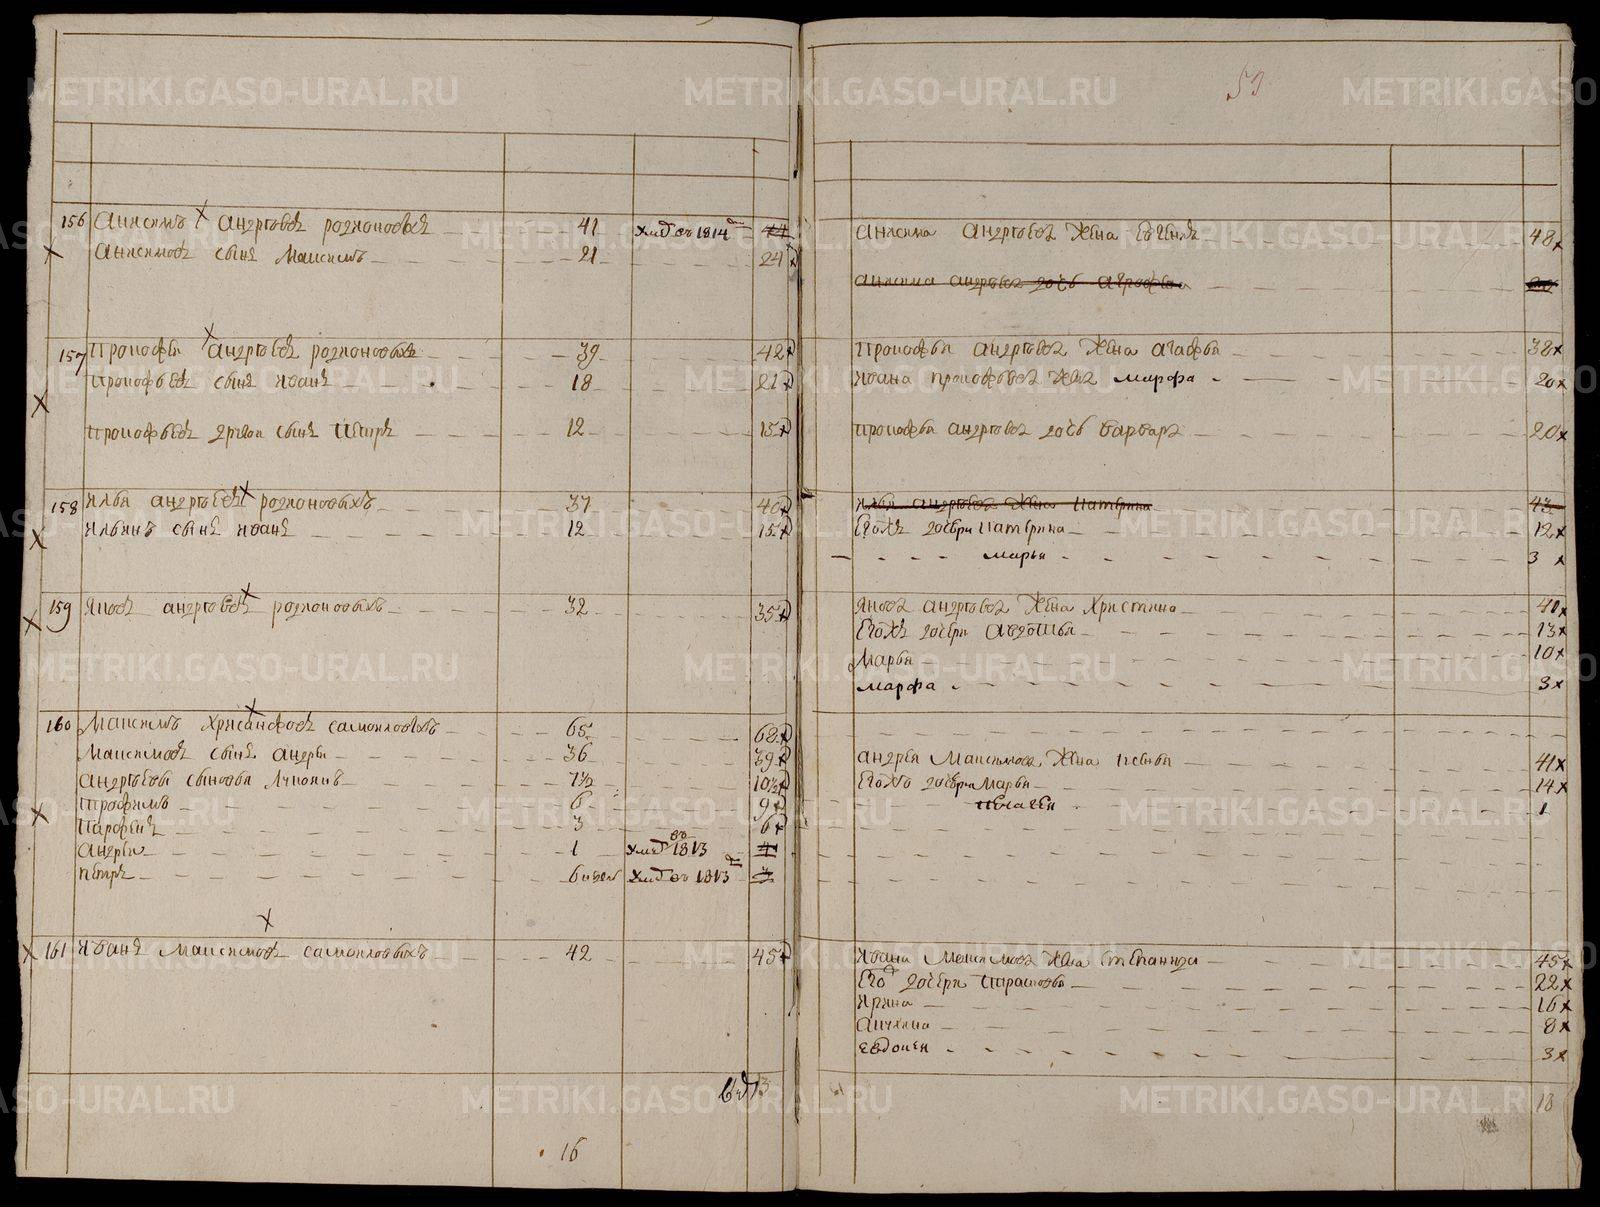 53
156 Анисимъ андреевъ родионовыхъ 41 умре въ 1814 44
Анисимовъ сынъ Максимъ 21 24
157 Прокофеи андреевъ родионовыхъ 39 42
Прокофьевъ сынъ Иванъ 18 21
Прокофьевъ другои сынъ Петръ 12 15
158 Илья андреевъ родионовыхъ 37 40
Ильинъ сынъ иванъ 12 15
159 Яковъ андреевъ родионовыхъ 32 35
160 Максимъ Хрисанфовъ самоиловыхъ 65 68
Максимовъ сынъ андреи 36 39
андреевы сыновья 7½ 10½
Трофимъ 6 9
Парфенъ 3 6
андреи 1 умре въ 1813 4
петръ 6 недель умре въ 1813 3
161 Иванъ максимовъ самоиловыхъ 42 45
13
16
анисима андреева жена 48
анисима андреева дочь
Прокофья андреева жена агафья 38
Ивана прокофьева жена марфа 20
Прокофья андреева дочь варвара 20
Ильи андреева жена катерина 43
Егожъ дочери катерина 12
марья 3
Якова андреева жена Христина 40
Егожъ дочери авдотья 13
Марья 10
марфа 3
андрея Максимова жена 41
Егожъ дочери марья 14
пелагея 1
Ивана Максимова жена степанида 45
Его дочери парасковья 22
Ирина 16
акулина 8
евдокея 3
18
METRIKI.GASO-URAL.RU